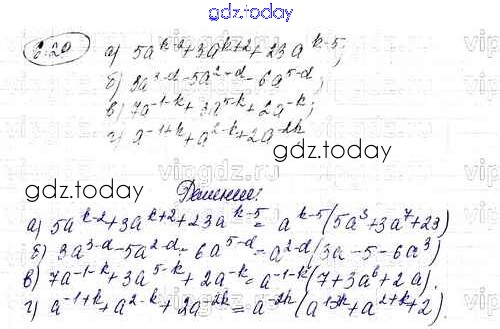 gdz.today
6.20 а) 5a^{k-2}+3a^{k+2}+23a^{k-5};
б) 3a^{3-d}-5a^{2-d}-6a^{5-d};
в) 7a^{-1-k}+3a^{5-k}+2a^{-k};
г) a^{-1+k}+a^{2-k}+2a^{-2k}
gdz.today
gdz.today
Решение:
а) 5a^{k-2}+3a^{k+2}+23a^{k-5}=a^{k-5}(5a^3+3a^7+23)
б) 3a^{3-d}-5a^{2-d}-6a^{5-d}=a^{2-d}(3a-5-6a^3)
в) 7a^{-1-k}+3a^{5-k}+2a^{-k}=a^{-1-k}(7+3a^6+2a).
г) a^{-1+k}+a^{2-k}+2a^{-2k}=a^{-2k}(a^{13k}+a^{2+k}+2).
gdz.today